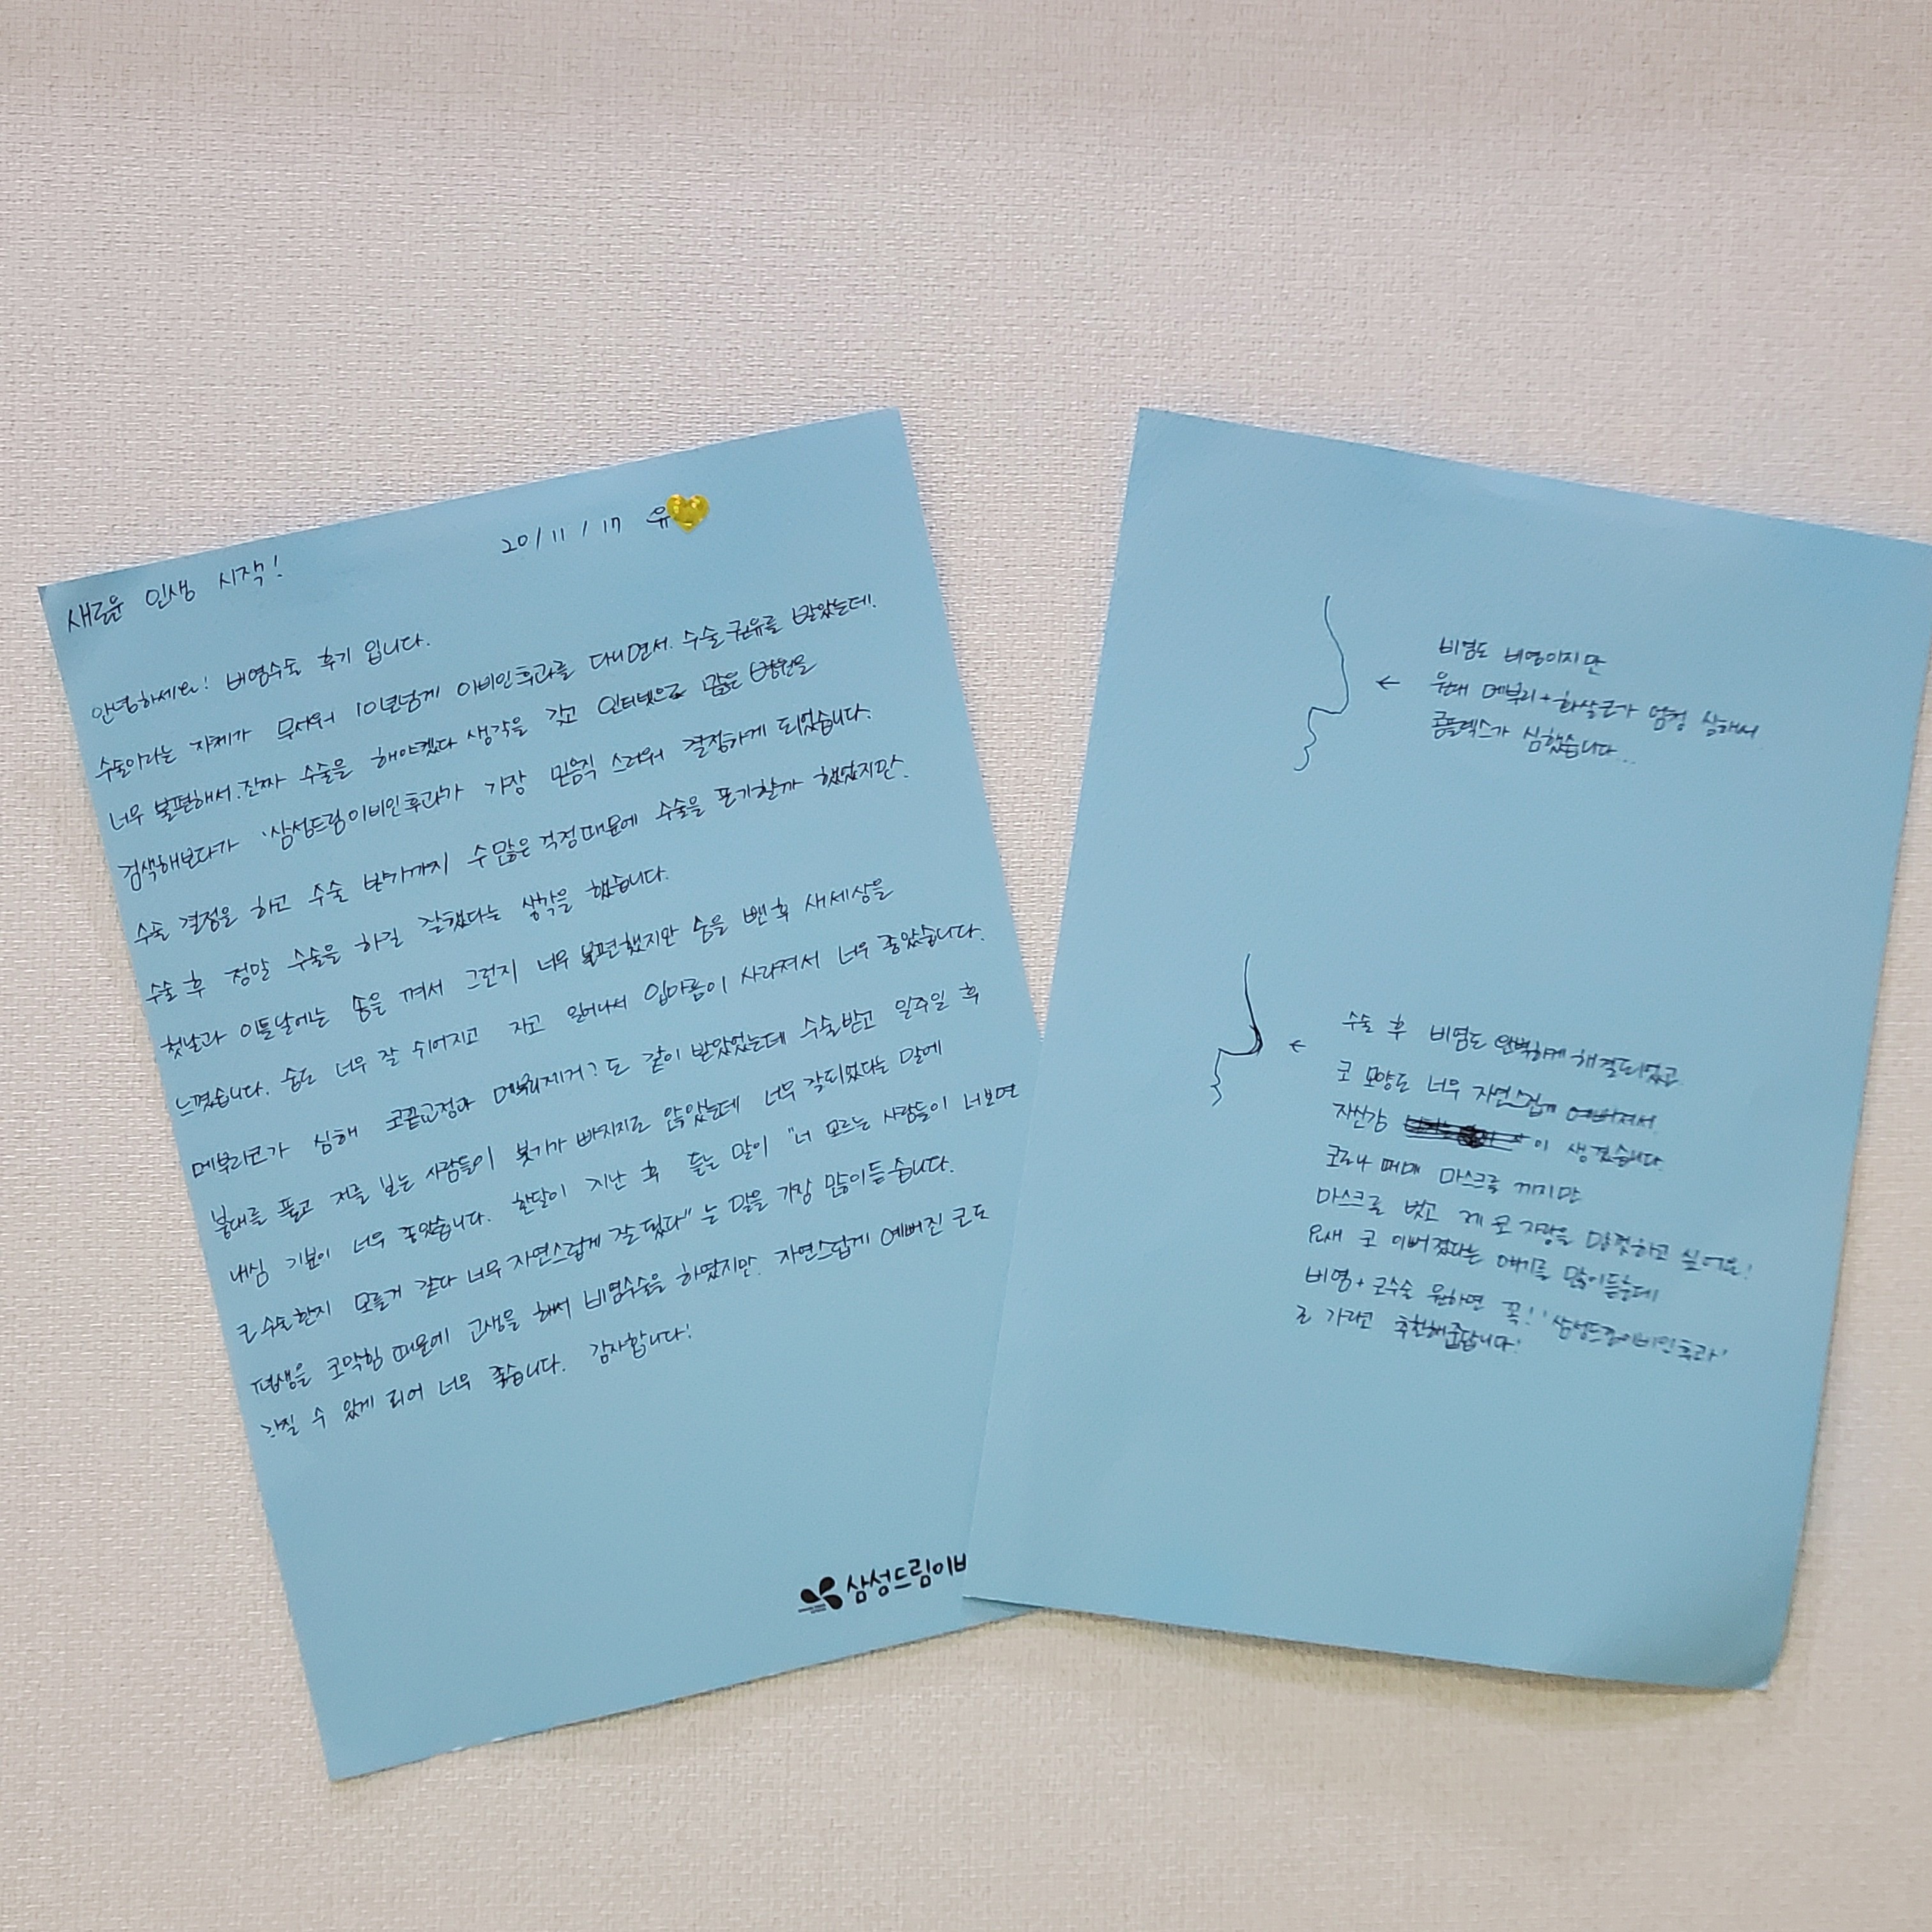 20/11/17 유
새로운 인생 시작!
안녕하세요! 비염수술 후기 입니다.
수술이라는 자체가 무서워 10년넘게 이비인후과를 다니면서 수술 권유를 받았는데.
너무 불편해서. 진짜 수술을 해야겠다 생각을 갖고 인터넷으로 많은 병원을
검색해보다가 '삼성드림이비인후과'가 가장 믿음직 스러워 결정하게 되었습니다.
수술 결정을 하고 수술 받기까지 수많은 걱정때문에 수술을 포기할까 했었지만.
수술 후 정말 수술을 하길 잘했다는 생각을 했습니다.
첫날과 이튿날에는 솜을 껴서 그런지 너무 불편했지만 솜을 뺀 후 새세상을
느꼈습니다. 숨도 너무 잘 쉬어지고 자고 일어나서 입마름이 사라져서 너무 좋았습니다.
메부리코가 심해 코끝교정과 메부리제거? 도 같이 받았었는데 수술받고 일주일 후
붕대를 풀고 저를 보는 사람들이 붓기가 빠지지도 않았는데 너무 잘되었다는 말에
내심 기분이 너무 좋았습니다. 한달이 지난 후 듣는 말이 "너 모르는 사람들이 너보면
코 수술한지 모를거 같다 너무 자연스럽게 잘 됬다" 는 말을 가장 많이듣습니다.
평생을 코막힘 때문에 고생을 해서 비염수술을 하였지만. 자연스럽게 예뻐진 코도
가질 수 있게 되어 너무 좋습니다. 감사합니다!
삼성드림이비
←
비염도 비염이지만
원래 메부리+화살코가 엄청 심해서
콤플렉스가 심했습니다...
←
수술 후 비염도 완벽하게 해결되었고
코 모양도 너무 자연스럽게 예뻐져서
자신감 이 생겼습니다.
코로나 때매 마스크를 끼지만
마스크를 벗고 제 코 자랑을 마껏하고 싶어요!
요새 코 이뻐졌다는 얘기를 많이듣는데
비염+코수술 원하면 꼭! '삼성드림이비인후과'
로 가라고 추천해줍답니다!